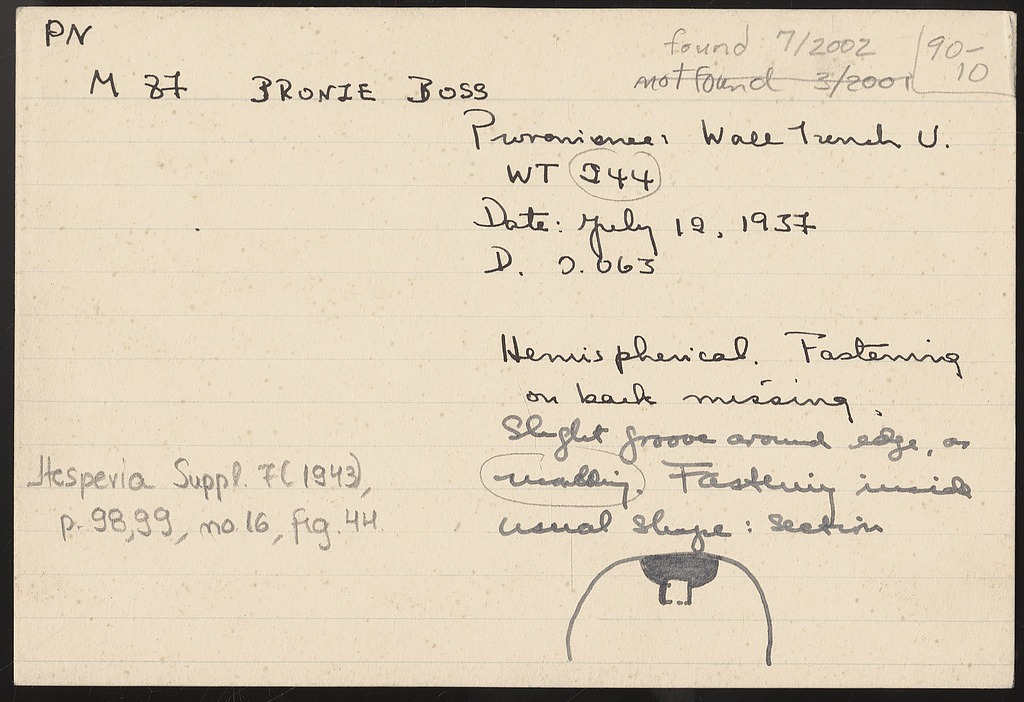 PN
found 7/2002
90-
10
not found 3/2001
M 87 BRONZE BOSS
Provenience: Wall Trench V.
WT 244
Date: July 12, 1937
D. 0.063
Hemispherical. Fastening
on back missing.
Slight groove around edge, as
moulding. Fastening inside
usual shape: section
Hesperia Suppl. 7 (1943),
p. 98,99, no 16, fig. 44